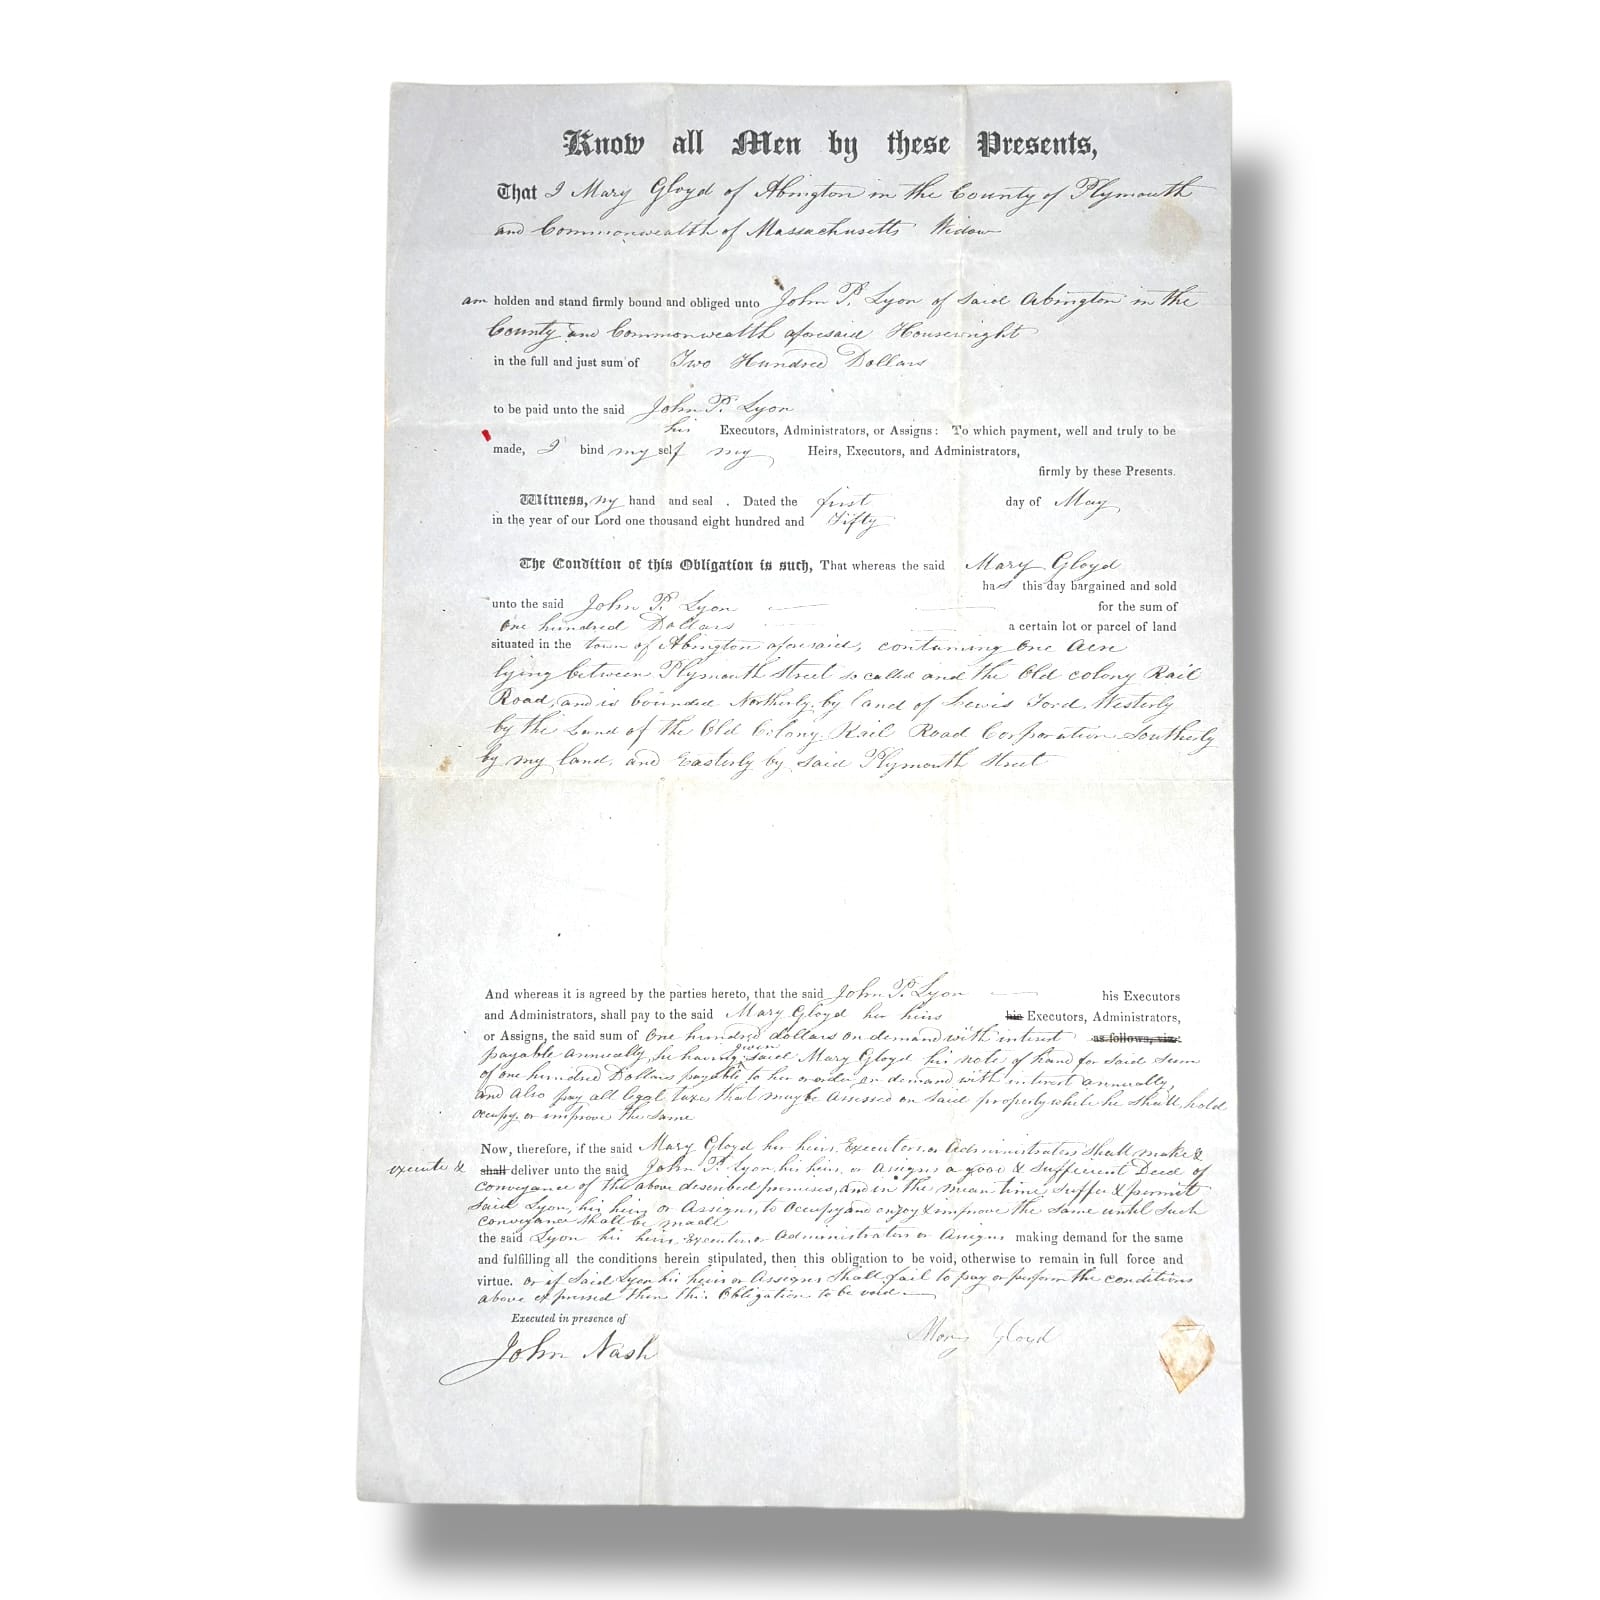 Know all Men by these Presents,
That I Mary Gloyd of Abington in the County of Plymouth
and Commonwealth of Massachusetts Widow
am holden and stand firmly bound and obliged unto John P. Lyon of said Abington in the
County and Commonwealth aforesaid Housewright
in the full and just sum of Two Hundred Dollars
to be paid unto the said John P. Lyon
his Executors, Administrators, or Assigns: To which payment, well and truly to be
made, I bind my self my Heirs, Executors, and Administrators,
firmly by these Presents.
Witness, my hand and seal . Dated the first day of May
in the year of our Lord one thousand eight hundred and Fifty
The Condition of this Obligation is such, That whereas the said Mary Gloyd
has this day bargained and sold
unto the said John P. Lyon for the sum of
One hundred Dollars a certain lot or parcel of land
situated in the town of Abington aforesaid, containing One Acre
lying between Plymouth Street so called and the Old colony Rail
Road, and is bounded Northerly by land of Lewis Ford, Westerly
by the Land of the Old Colony Rail Road Corporation Southerly
by my land, and Easterly by said Plymouth Street
And whereas it is agreed by the parties hereto, that the said John P. Lyon his Executors
and Administrators, shall pay to the said Mary Gloyd her heirs his Executors, Administrators,
or Assigns, the said sum of One hundred dollars on demand with interest as follows, viz:
payable annually, he having given said Mary Gloyd his note of hand for said sum
of one hundred Dollars payable to her or order, on demand with interest annually,
and also pay all legal taxes that may be assessed on said property while he shall, hold
occupy or improve the same
Now, therefore, if the said Mary Gloyd her heirs, Executors or Administrators shall make &
execute & shall deliver unto the said John P. Lyon, his heirs, or Assigns a good & sufficient Deed of
conveyance of the above described premises, and in the mean time, suffer & permit
said Lyon, his heirs or Assigns, to Occupy and enjoy & improve the same until such
conveyance shall be made
the said Lyon his heirs, Executors Administrators or Assigns making demand for the same
and fulfilling all the conditions herein stipulated, then this obligation to be void, otherwise to remain in full force and
virtue. or if said Lyon his heirs or Assigns shall fail to pay or perform the conditions
above expressed then this Obligation to be void.
Executed in presence of
John Nash Mary Gloyd